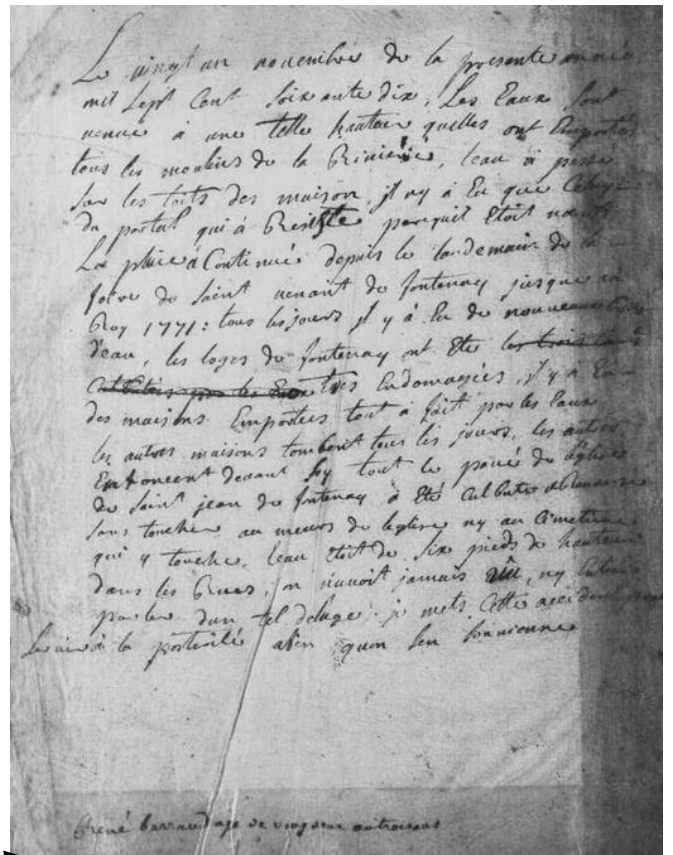 Le vingt un novembre de la presente année
mil Sept Cent soixante dix, Les Eaux sont
venue à une telle hauteur quelles ont Emportes
tous les moulins de la Riviere, leau à passé
sur les toits des maison, jl ny à Eu que Celuy
du portal qui à Resiste parcequil Etoit neuf
La pluie à Continué depuis le landemain de la
foire de saint venant de fontenay jusque au
Roy 1771: tous les jours jl y à Eu de nouveaux
d'eau, les loges de fontenay ont Eté les trois
Culbutés par les Eaux tres Endomagées, jl y à Eu
des maisons Emportees tout a fait par les Eaux
les autres maisons tombent tous les jours, les autres
Enfoncent devant soy tout le pavé de léglise
de saint jean de fontenay à Eté Culbuté
sans toucher au meurs de leglise ny au Cimetiere
qui y touche, leau Etoit de six pieds de hauteur
dans les Rues, on navoit jamais vû, ny Entendu
parler dun tel deluge. je mets Cette accident
a la posterité afin quon sen souvienne
René barraud age de vingt